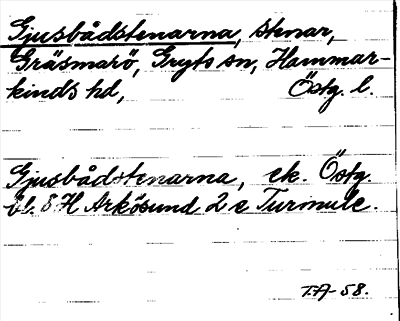 Gjusbådstenarna, stenar,
Gräsmarö, Gryts sn, Hammar-
kinds hd, Östg. l.
Gjusbådstenarna, ek. Östg.
bl. 8 H Arkösund 2 e Turmule.
T.A-58.